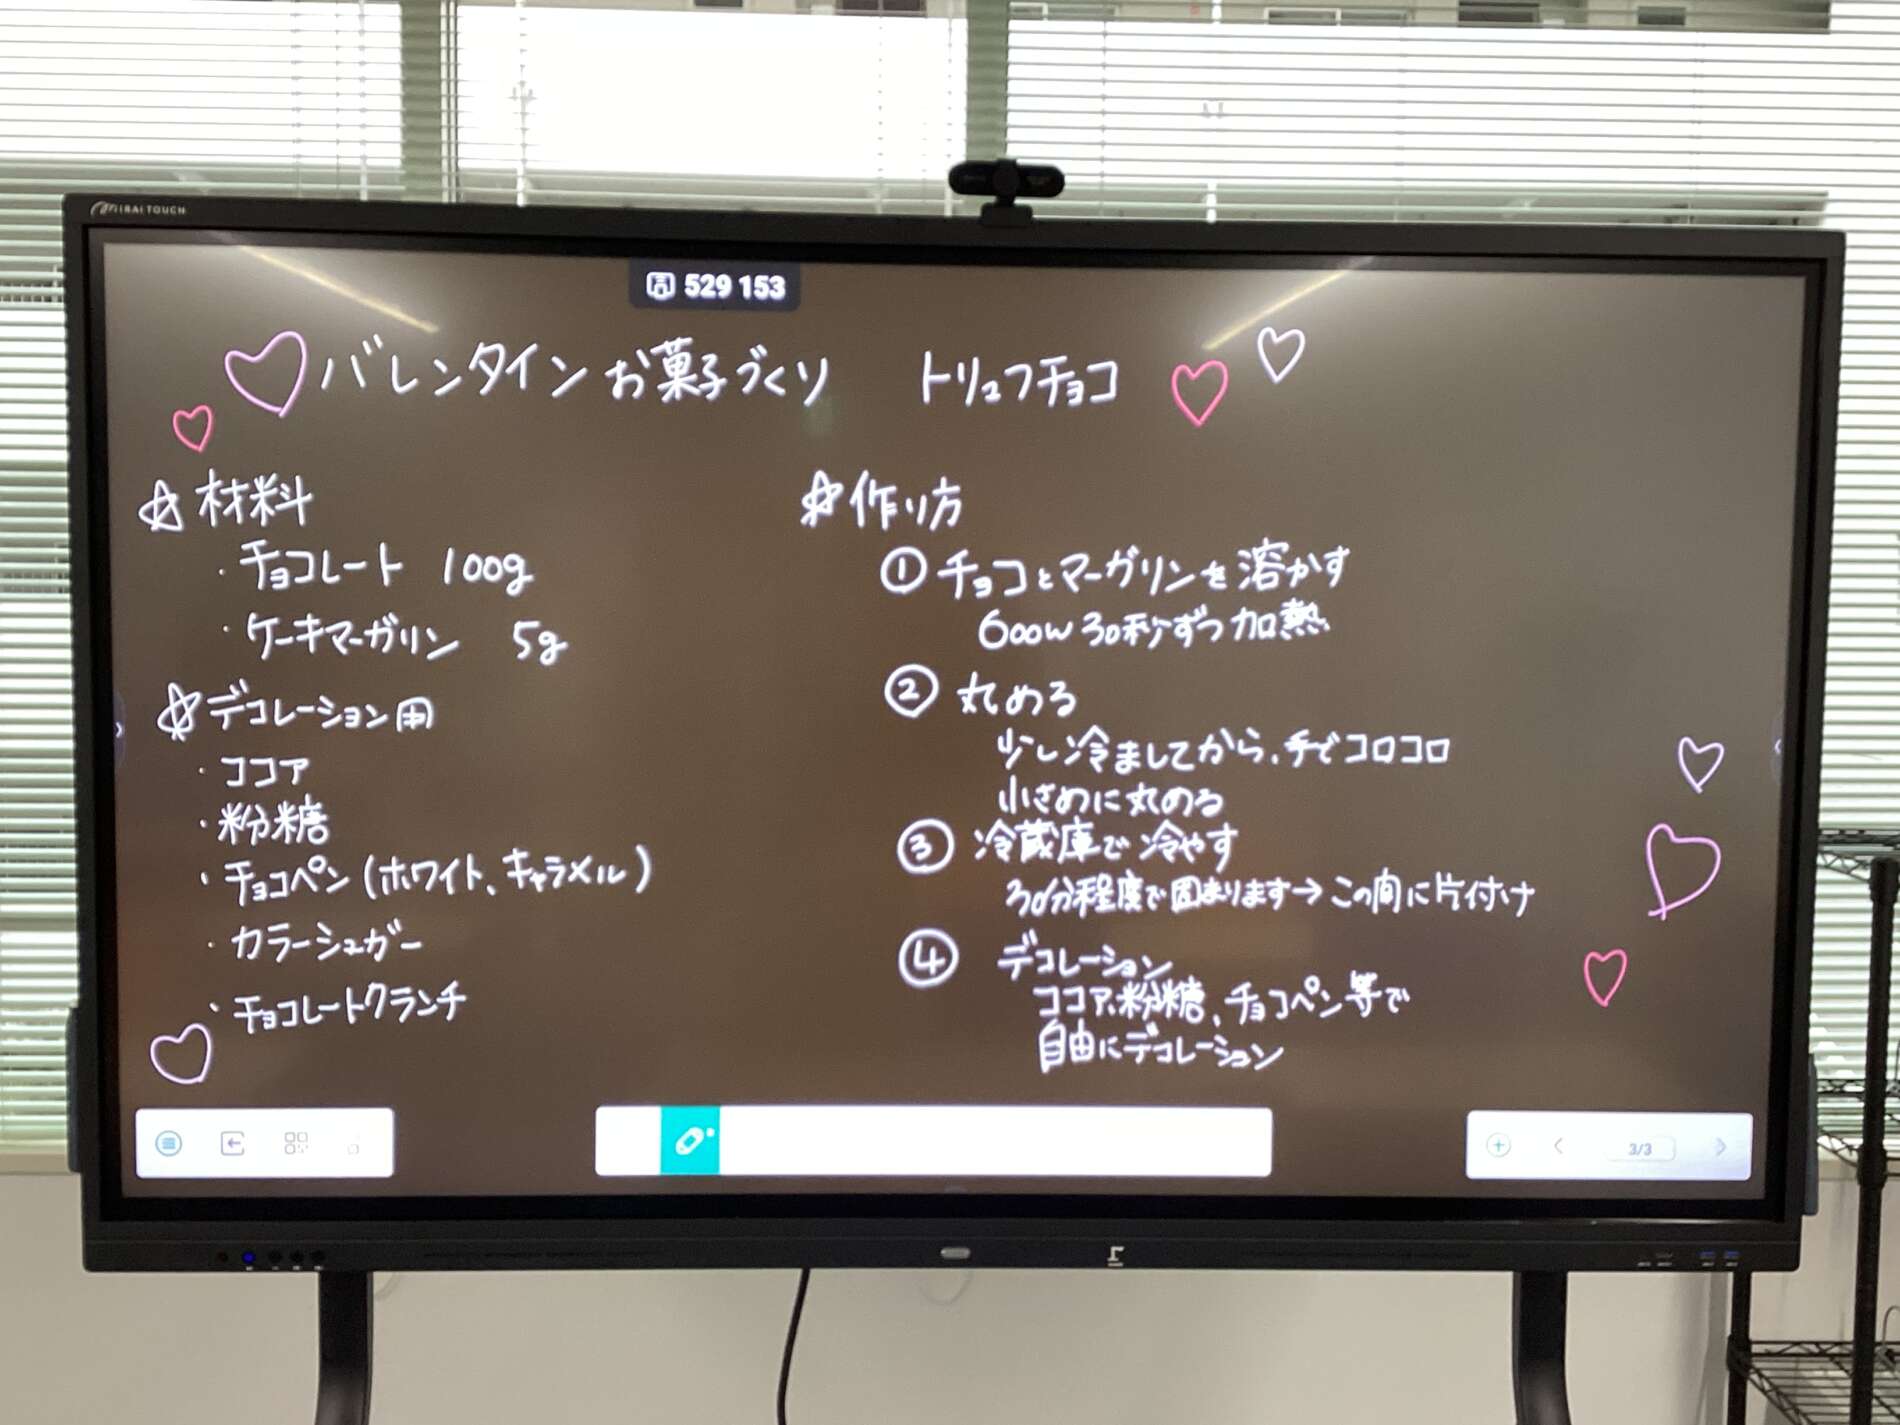 MIRAI TOUCH
529 153
バレンタインお菓子づくり トリュフチョコ
☆材料
・チョコレート 100g
・ケーキマーガリン 5g
☆デコレーション用
・ココア
・粉糖
・チョコペン(ホワイト、キャラメル)
・カラーシュガー
・チョコレートクランチ
☆作り方
①チョコとマーガリンを溶かす
600W 30秒ずつ加熱
②丸める
少し冷ましてから、手でコロコロ
小さめに丸める
③冷蔵庫で冷やす
30分程度で固まります→この間に片付け
④デコレーション
ココア、粉糖、チョコペン等で
自由にデコレーション
3/3